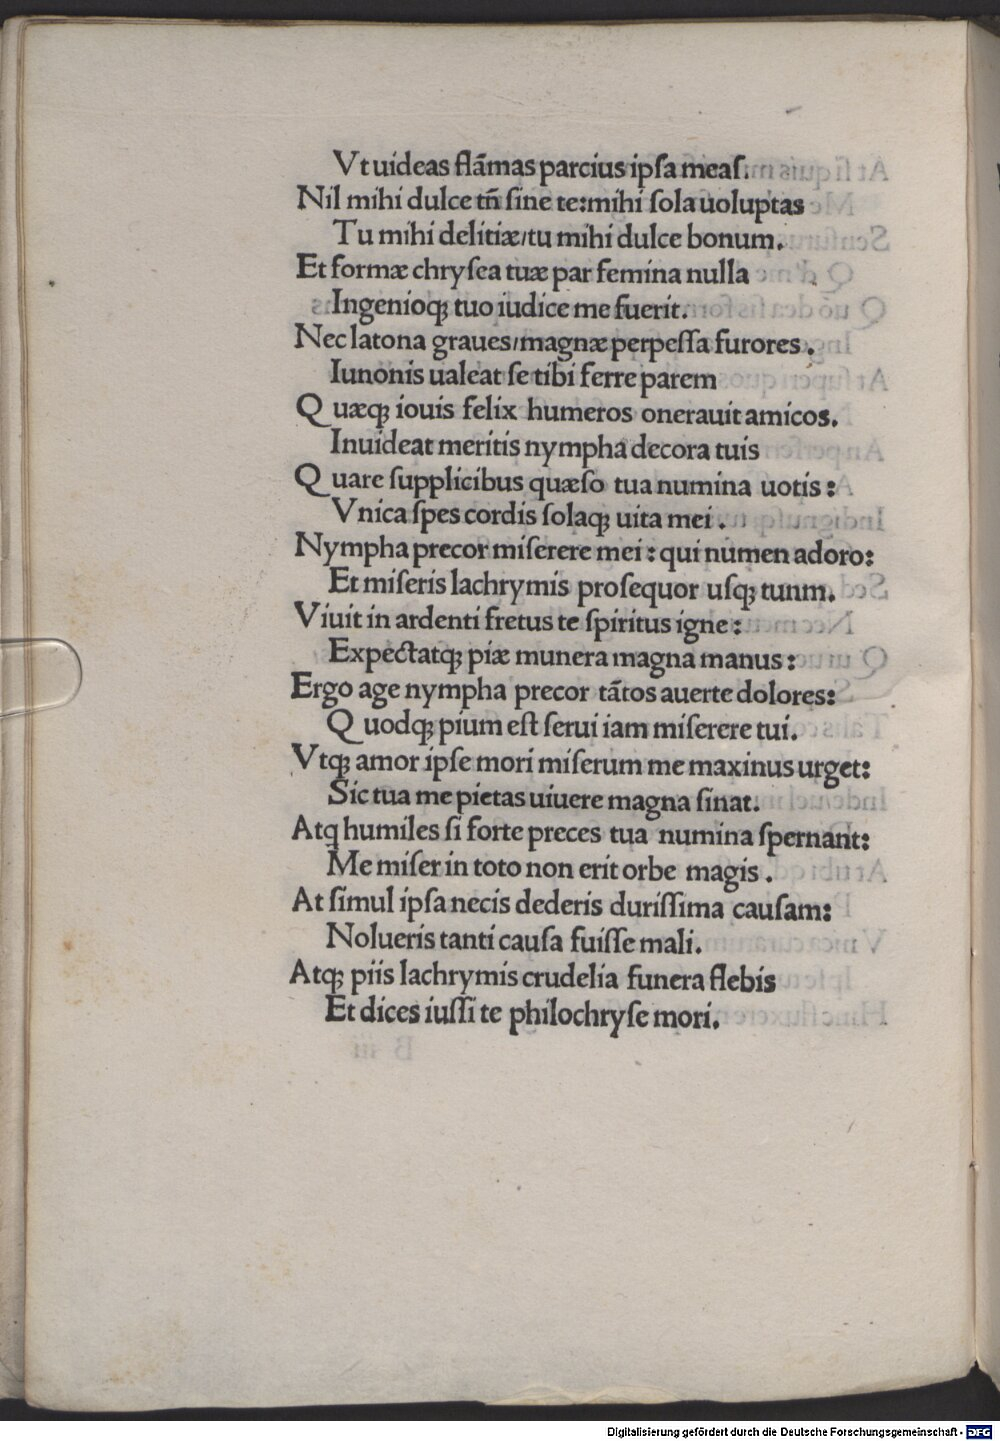 Vt uideas flãmas parcius ipſa meaſ.
Nil mihi dulce tñ ſine te:mihi ſola uoluptas
Tu mihi delitiæ/tu mihi dulce bonum.
Et formæ chryſea tuæ par femina nulla
Ingenioqꝫ tuo iudice me fuerit.
Nec latona graues/magnæ perpeſſa furores.
Iunonis ualeat ſe tibi ferre parem
Quæqꝫ iouis felix humeros onerauit amicos.
Inuideat meritis nympha decora tuis
Quare ſupplicibus quæſo tua numina uotis:
Vnica ſpes cordis ſolaqꝫ uita mei.
Nympha precor miſerere mei: qui numen adoro:
Et miſeris lachrymis proſequor uſqꝫ tunm.
Viuit in ardenti fretus te ſpiritus igne:
Expectatqꝫ piæ munera magna manus:
Ergo age nympha precor tãtos auerte dolores:
Quodqꝫ pium eſt ſerui iam miſerere tui.
Vtqꝫ amor ipſe mori miſerum me maxinus urget:
Sic tua me pietas uiuere magna ſinat.
Atq humiles ſi forte preces tua numina ſpernant:
Me miſer in toto non erit orbe magis.
At ſimul ipſa necis dederis duriſſima cauſam:
Nolueris tanti cauſa fuiſſe mali.
Atqꝫ piis lachrymis crudelia funera flebis
Et dices iuſſi te philochryſe mori.
Digitalisierung gefördert durch die Deutsche Forschungsgemeinschaft - DFG